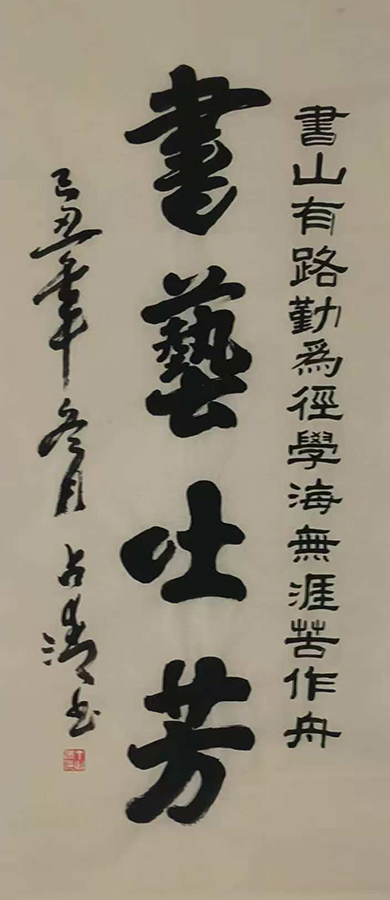 書山有路勤為徑學海無涯苦作舟
書藝吐芳
己丑年冬月占清書